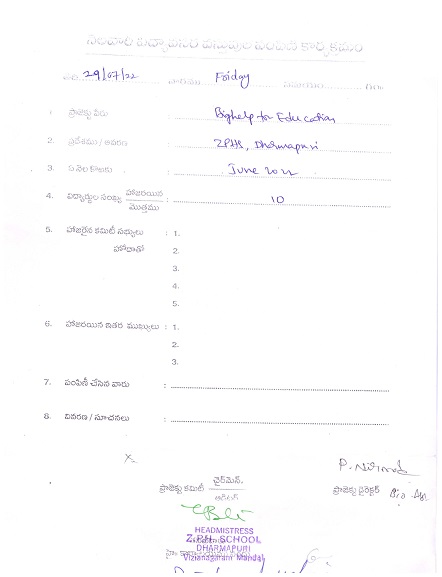 నెలవారీ విద్యా పనిరి వస్తువుల పంపిణీ కార్యక్రమం
తేది 29/07/22 వారము Friday సమయం గం॥
1. ప్రాజెక్టు పేరు Bighelp for Education
2. ప్రదేశము / ఆవరణ ZPHS, Dharmapuri
3. ఏ నెల కొరకు June 2022
4. విద్యార్థుల సంఖ్య హాజరయిన 10
మొత్తము
5. హాజరైన కమిటీ సభ్యులు : 1.
హోదాతో 2.
3.
4.
5.
6. హాజరయిన ఇతర ముఖ్యులు : 1.
2.
3.
7. పంపిణీ చేసిన వారు :
8. వివరణ / సూచనలు :
X
P. Nirmod
ప్రాజెక్టు కమిటీ చైర్మెన్. ప్రాజెక్టు డైరెక్టర్
ఆడిటర్
HEADMISTRESS
Z.P.H. SCHOOL
DHARMAPURI
Vizianagaram Mandal